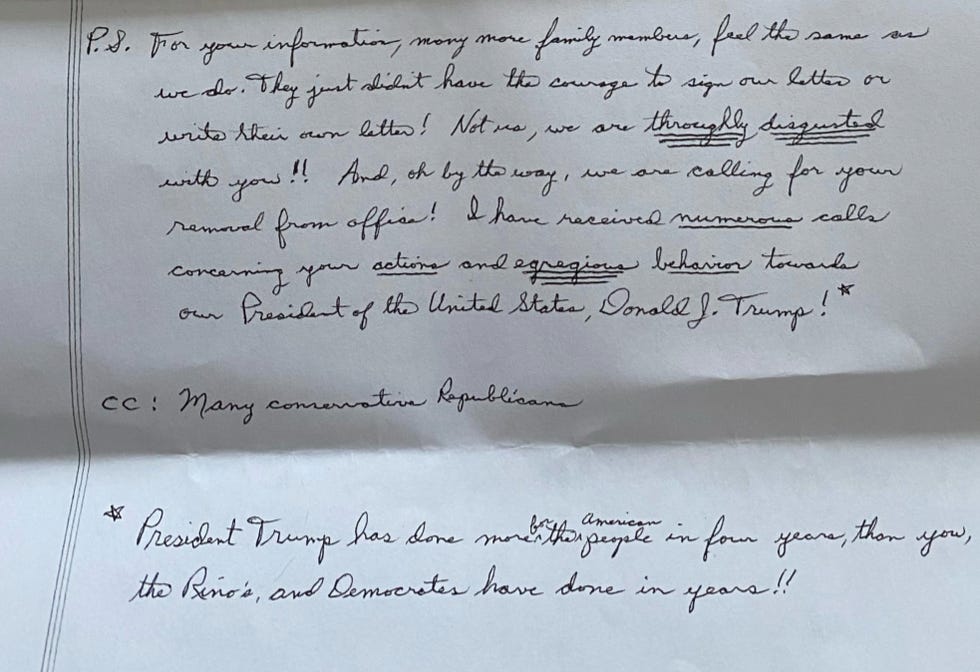 P.S. For your information, many more family members, feel the same as
we do. They just didn't have the courage to sign our letter or
write their own letter! Not us, we are throughly disgusted
with you!! And, oh by the way, we are calling for your
removal from office! I have received numerous calls
concerning your actions and egregious behavior towards
our President of the United States, Donald J. Trump! *
CC: Many conservative Republicans
* President Trump has done more for the American people in four years, than you,
the Rino's, and Democrates have done in years!!